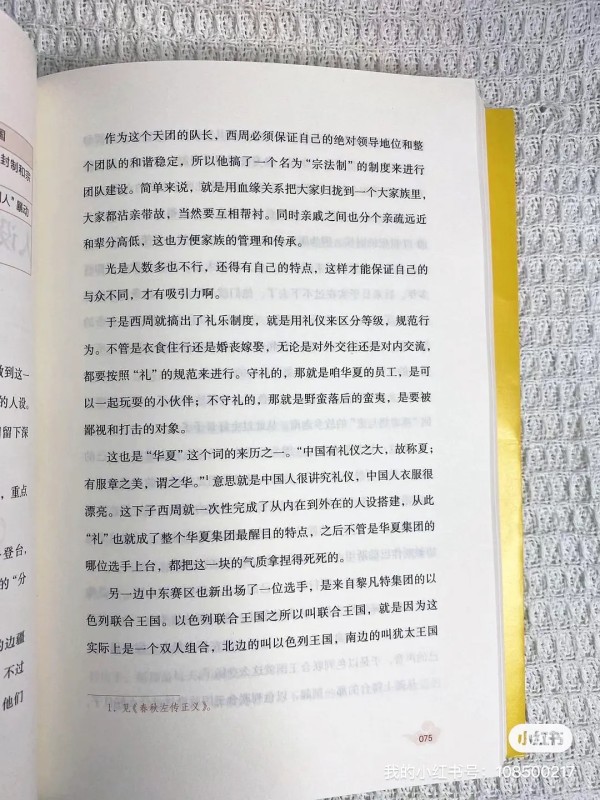 国
封制和宗
国人”暴动
人设
做到这一
的人设。
留下深
重点
登台,
的“分
的边疆
不过
他们
作为这个天团的队长,西周必须保证自己的绝对领导地位和整
个团队的和谐稳定,所以他搞了一个名为“宗法制”的制度来进行
团队建设。简单来说,就是用血缘关系把大家归拢到一个大家族里,
大家都沾亲带故,当然要互相帮衬。同时亲戚之间也分个亲疏远近
和辈分高低,这也方便家族的管理和传承。
光是人数多也不行,还得有自己的特点,这样才能保证自己的
与众不同,才有吸引力啊。
于是西周就搞出了礼乐制度,就是用礼仪来区分等级,规范行
为。不管是衣食住行还是婚丧嫁娶,无论是对外交往还是对内交流,
都要按照“礼”的规范来进行。守礼的,那就是咱华夏的员工,是可
以一起玩耍的小伙伴;不守礼的,那就是野蛮落后的蛮夷,是要被
鄙视和打击的对象。
这也是“华夏”这个词的来历之一。“中国有礼仪之大,故称夏;
有服章之美,谓之华。”1 意思就是中国人很讲究礼仪,中国人衣服很
漂亮。这下子西周就一次性完成了从内在到外在的人设搭建,从此
“礼”也就成了整个华夏集团最醒目的特点,之后不管是华夏集团的
哪位选手上台,都把这一块的气质拿捏得死死的。
另一边中东赛区也新出场了一位选手,是来自黎凡特集团的以
色列联合王国。以色列联合王国之所以叫联合王国,就是因为这
实际上是一个双人组合,北边的叫以色列王国,南边的叫犹太王国
1. 见《春秋左传正义》。
075
小红书
我的小红书号:108500217